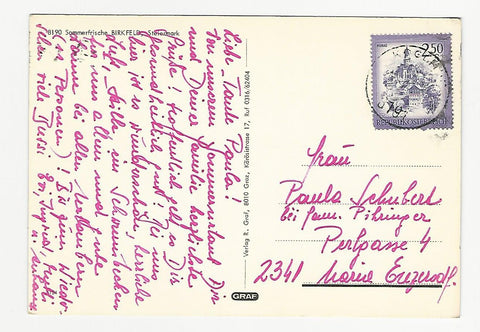 8190 Sommerfrische BIRKFELD, Steiermark
Liebe Tante Paula!
Von unserem Sommerurlaub Dir
und Deiner Familie herzlichste
Grüße! Hoffentlich geht es Dir
gesundheitlich gut! Bei uns
hier ist es wunderschön, herrliche
Luft, Stille, im Schwimmbecken
nur uns allein und
bei allen
(10 Personen)! Bis zum Wieder-
sehen viele Bussi Ingrid,
Verlag R. Graf, 8010 Graz, Körösistrasse 17, Ruf 0316/62404
GRAF
2.50
REPUBLIK ÖSTERREICH
Frau
Paula Schubert
bei Fam. Pihringer
Perlgasse 4
2341 Maria Enzersdf.